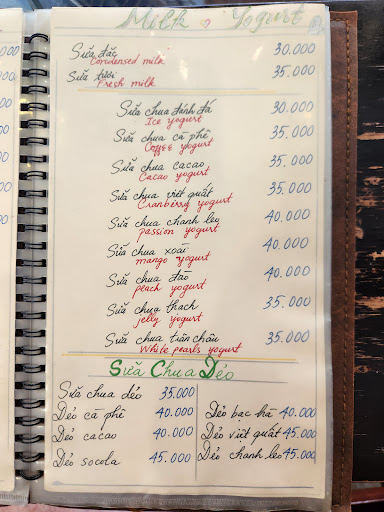 Milk Yogurt
Sữa đặc 30.000
Condensed milk
Sữa tươi 35.000
Fresh milk
Sữa chua đánh đá 30.000
Ice yogurt
Sữa chua cà phê 35.000
Coffee yogurt
Sữa chua cacao 35.000
Cacao yogurt
Sữa chua việt quất 35.000
Cranberry yogurt
Sữa chua chanh leo 40.000
passion yogurt
Sữa chua xoài 40.000
mango yogurt
Sữa chua đào 40.000
peach yogurt
Sữa chua thạch 35.000
jelly yogurt
Sữa chua trân châu 35.000
White pearls yogurt
Sữa Chua Dẻo
Sữa chua dẻo 35.000
Dẻo cà phê 40.000
Dẻo cacao 40.000
Dẻo socola 45.000
Dẻo bạc hà 40.000
Dẻo việt quất 45.000
Dẻo chanh leo 45.000